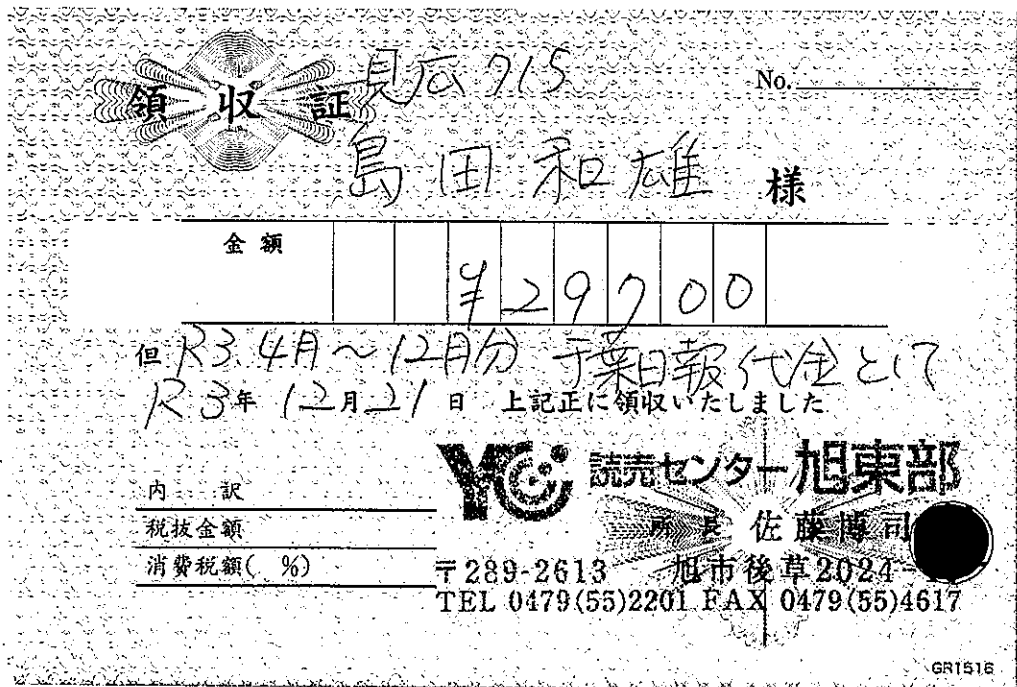 見広715
No.
領収証
島田和雄 様
金額 ¥29700
但 R3.4月～12月分 千葉日報代金として
R3年12月21日 上記正に領収いたしました
内訳
税抜金額
消費税額( %)
YC 読売センター旭東部
所長 佐藤博司
〒289-2613 旭市後草2024-
TEL 0479(55)2201 FAX 0479(55)4617
GR1516